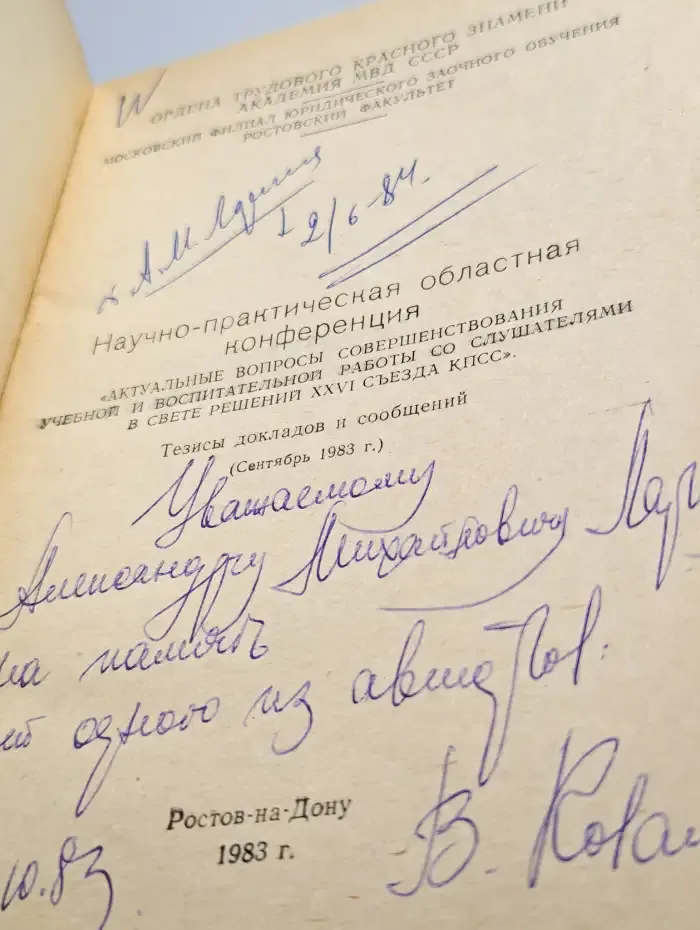 ОРДЕНА ТРУДОВОГО КРАСНОГО ЗНАМЕНИ
АКАДЕМИЯ МВД СССР
МОСКОВСКИЙ ФИЛИАЛ ЮРИДИЧЕСКОГО ЗАОЧНОГО ОБУЧЕНИЯ
РОСТОВСКИЙ ФАКУЛЬТЕТ
А. М.
2/6-84.
Научно-практическая областная
конференция
«АКТУАЛЬНЫЕ ВОПРОСЫ СОВЕРШЕНСТВОВАНИЯ
УЧЕБНОЙ И ВОСПИТАТЕЛЬНОЙ РАБОТЫ СО СЛУШАТЕЛЯМИ
В СВЕТЕ РЕШЕНИЙ XXVI СЪЕЗДА КПСС».
Тезисы докладов и сообщений
(Сентябрь 1983 г.)
Уважаемому
Александру Михайловичу
на память
одного из авторов.
Ростов-на-Дону
1983 г.
В. Ковал
10.83